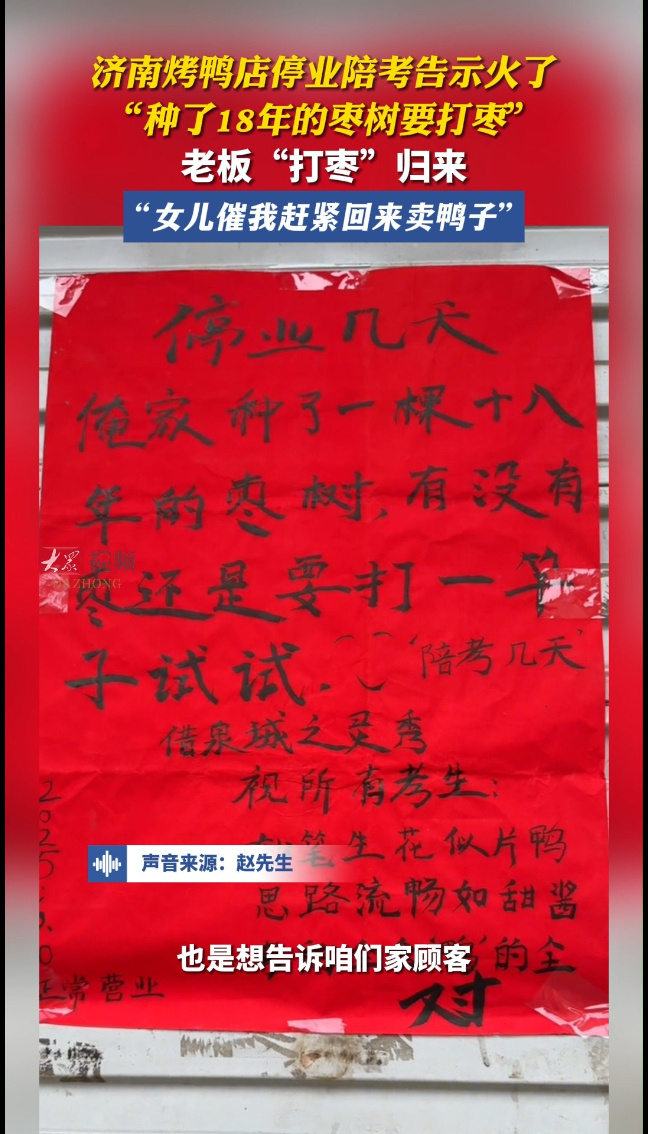 济南烤鸭店停业陪考告示火了
“种了18年的枣树要打枣”
老板“打枣”归来
“女儿催我赶紧回来卖鸭子”
停业几天
俺家种了一棵十八
年的枣树,有没有
枣还是要打一竿
子试试.
‘陪考几天’
借泉城之灵秀
祝所有考生:
笔生花似片鸭
思路流畅如甜酱
的全
对
正常营业
大众视频
ZHONG
声音来源：赵先生
也是想告诉咱们家顾客